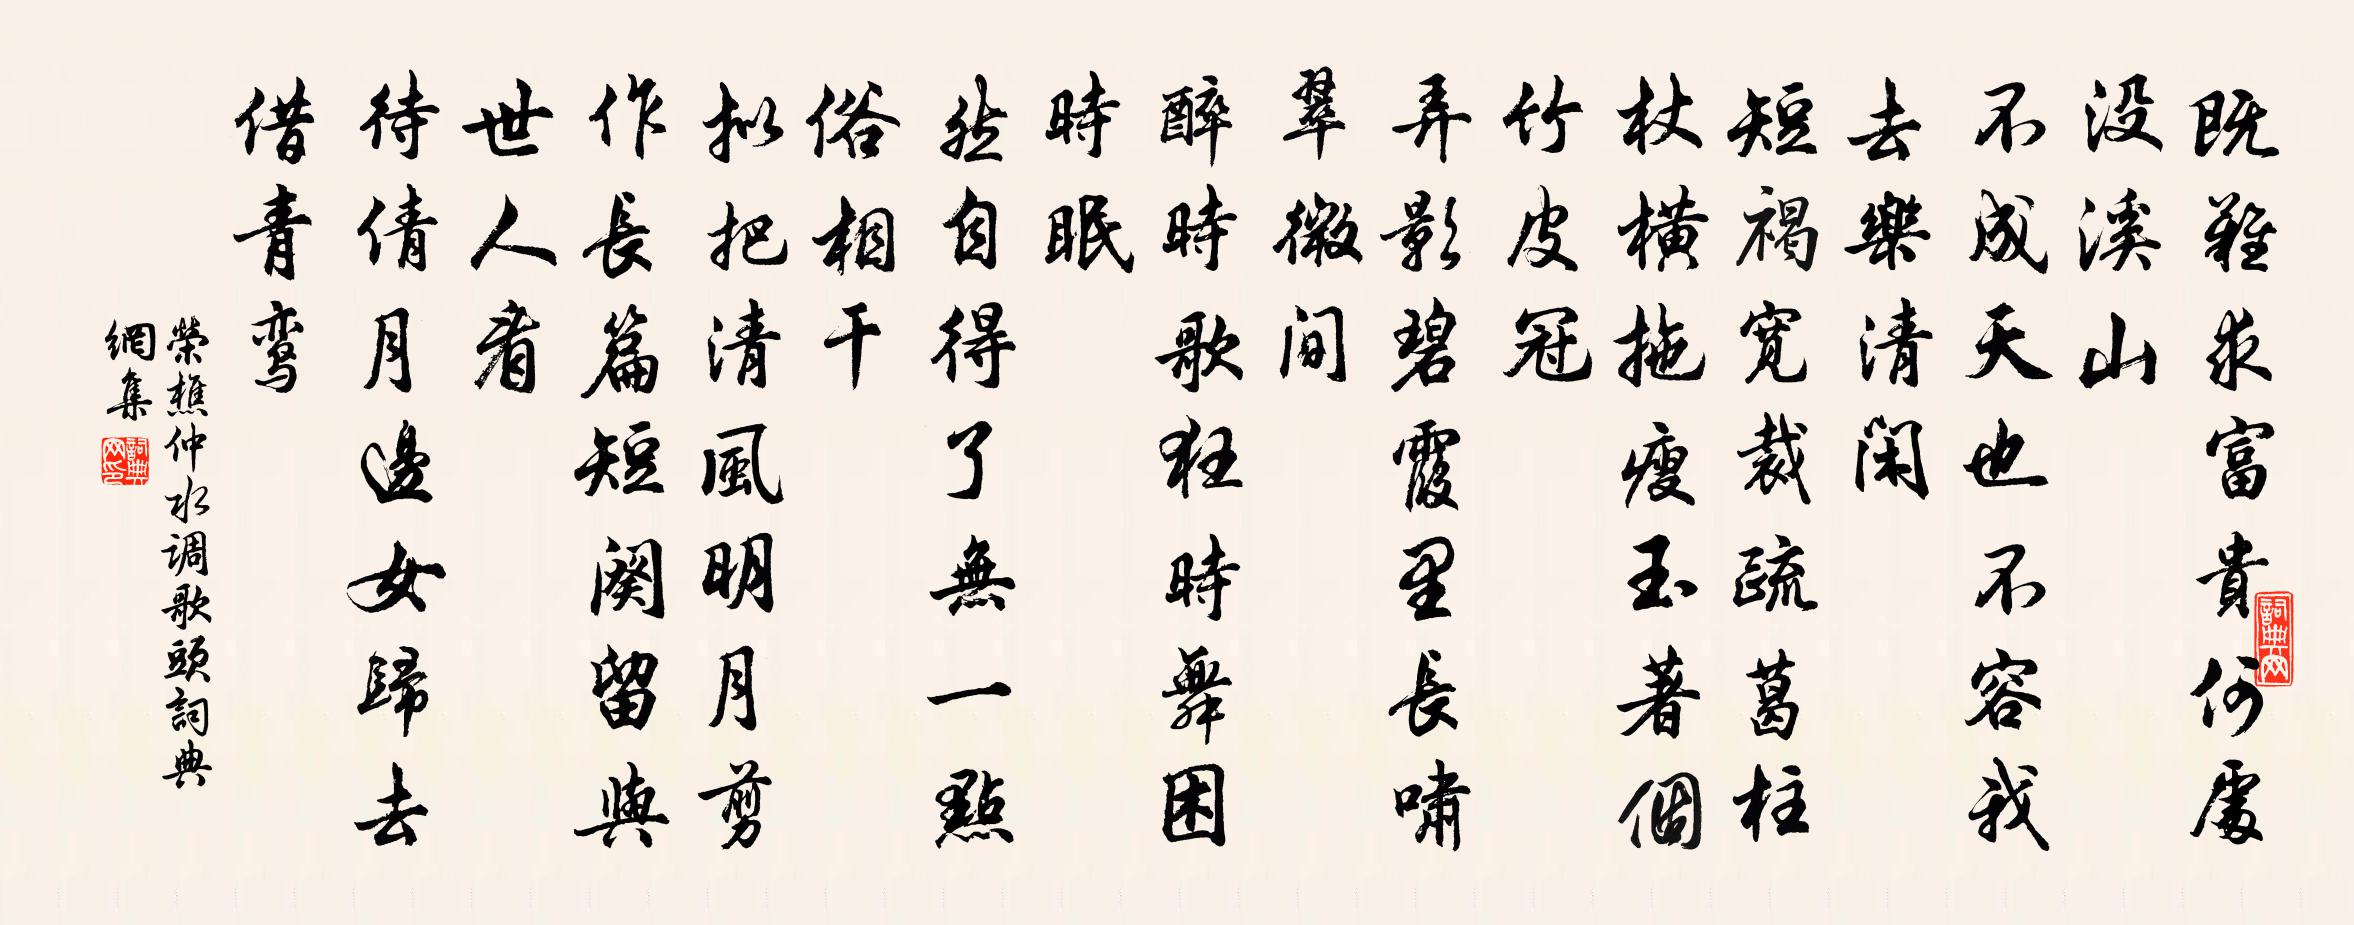 既難求富貴何處
没溪山
不成天也不容我
去樂清閑
短褐寬裁疏葛柱
杖横拖瘦玉著個
竹皮冠
弄影碧霞里長嘯
翠微間
醉時歌狂時舞困
時眠
然自得了無一點
俗相干
拟把清風明月剪
作長篇短闋留與
世人看
待倩月邊女歸去
借青鸾
榮樵仲水调歌頭詞典
網集
詞典网
詞典网印